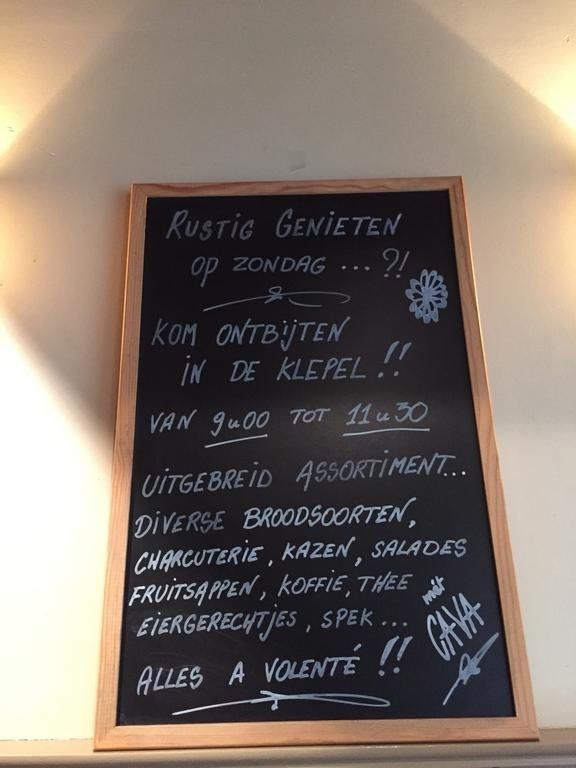 RUSTIG GENIETEN
OP ZONDAG ... ?!
KOM ONTBIJTEN
IN DE KLEPEL !!
VAN 9u00 TOT 11u30
UITGEBREID ASSORTIMENT...
DIVERSE BROODSOORTEN,
CHARCUTERIE, KAZEN, SALADES
FRUITSAPPEN, KOFFIE, THEE
EIERGERECHTJES, SPEK...
mét
CAVA
ALLES A VOLENTÉ !!